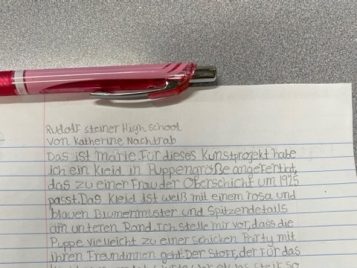 Rudolf Steiner High School
von Katherine Nachtrab
Das ist Marie. Für dieses Kunstprojekt habe
ich ein Kleid in Puppengröße angefertigt,
das zu einer Frau der Oberschicht um 1925
passt. Das Kleid ist weiß mit einem rosa und
blauen Blumenmuster und Spitzendetails
am unteren Rand. Ich stelle mir vor, dass die
Puppe vielleicht zu einer schicken Party mit
ihren Freundinnen geht. Der Stoff, der für das